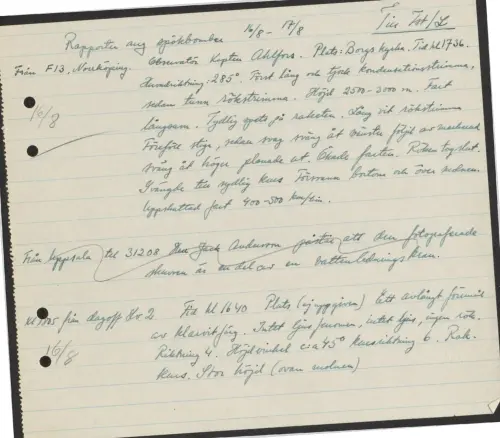 Till Fst/L
Rapporter ang spökbomber 16/8 - 17/8
Från F13, Norrköping. Observatör Kapten Ahlfors. Plats: Borgs kyrka. Tid kl 1736.
Kursriktning: 285°. Först lång och tjock kondensationsstrimma,
sedan tunn rökstrimma. Höjd 2500-3000 m. Fart
16/8
långsam. Tydlig spets på raketen. Lång vit rökstrimma
Föreföll stiga, sedan svag sväng åt vänster följd av markerad
sväng åt höger planade ut. Ökade farten. Röken tog slut.
Svängde till sydlig kurs. Försvann bortom och över molnen.
Uppskattad fart 400-500 km/tim.
Från Uppsala tel 31208 Herr Jack Andersson påstår att den fotograferade
skuren är en del av en vattenledningskran.
kl 1705 från dagoff Ö 2. Tid kl 1640 Plats (ej uppgiven) Ett avlångt föremål
av klarvit färg. Intet ljusfenomen, intet ljus, ingen rök.
16/8
Riktning 4. Höjdvinkel c:a 45° kursriktning 6. Rak
kurs. Stor höjd (ovan molnen)